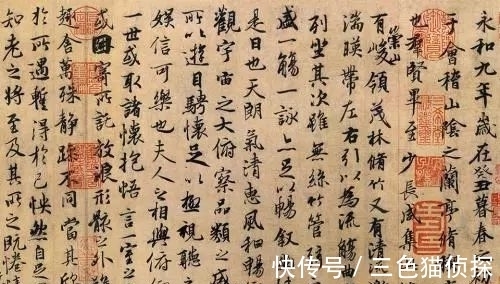 永和九年歲在癸丑暮春之初
于會稽山陰之蘭亭脩
也羣賢畢至少長咸集
有崇山峻領茂林脩竹又有清流
湍暎帶左右引以為流觴
列坐其次雖無絲竹管
盛一觴一詠亦足以暢叙
是日也天朗氣清惠風和暢
觀宇宙之大俯察品類之盛
所以遊目騁懷足以極視聽之
娛信可樂也夫人之相與俯
一世或取諸懷抱悟言一室之
或因寄所託放浪形骸之外雖
趣舍萬殊靜躁不同當其欣
於所遇暫得於己怏然自足
知老之將至及其所之既惓
快传号 / 三色猫侦探